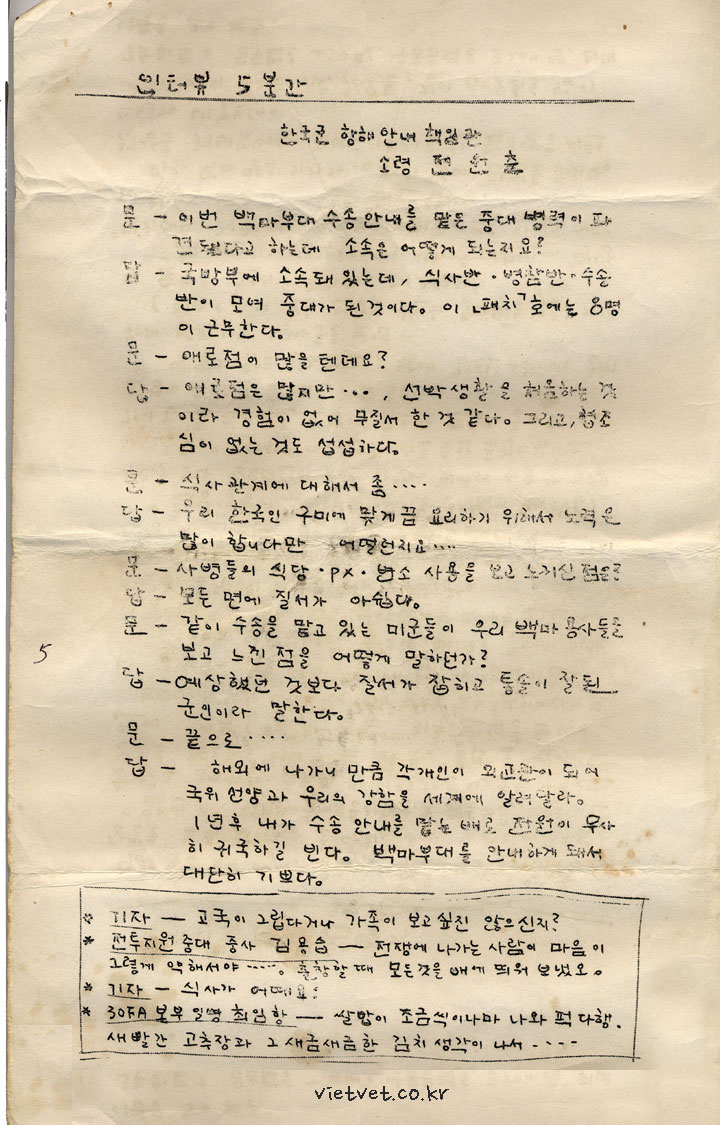 인터뷰 5분간
한국군 항해안내 책임관
소령 전원출
문 - 이번 백마부대 수송안내를 맡은 중대 병력이 파
견됐다고 하는데 소속은 어떻게 되는지요?
답 - 국방부에 소속돼 있는데, 식사반·병참반·수송
반이 모여 중대가 된것이다. 이 「패치」호에는 8명
이 근무한다.
문 - 애로점이 많을텐데요?
답 - 애로점은 많지만···, 선박생활을 처음하는 것
이라 경험이 없어 무질서 한것 같다. 그리고, 협조
심이 없는 것도 섭섭하다.
문 - 식사관계에 대해서 좀····
답 - 우리 한국인 구미에 맞게끔 요리하기 위해서 노력은
많이 합니다만 어떨런지요····
문 - 사병들의 식당·PX·변소 사용을 보고 느끼신 점은?
답 - 모든 면에 질서가 아쉽다.
문 - 같이 수송을 맡고 있는 미군들이 우리 백마용사들을
보고 느낀 점을 어떻게 말하던가?
5
답 - 예상했던 것보다 질서가 잡히고 통솔이 잘된
군인이라 말한다.
문 - 끝으로····
답 - 해외에 나가니 만큼 각개인이 외교관이 되어
국위선양과 우리의 강함을 세계에 알려달라.
1년후 내가 수송 안내를 맡는 배로 전원이 무사
히 귀국하길 빈다. 백마부대를 안내하게 돼서
대단히 기쁘다.
* 기자 - 고국이 그립다거나 가족이 보고싶진 않으신지?
* 전투지원중대 중사 김용습 - 전쟁에 나가는 사람이 마음이
그렇게 약해서야····. 출항할때 모든것을 배에 띄워 보냈오.
* 기자 - 식사가 어때요?
* 30FA 본부 일병 최임항 - 쌀밥이 조금씩이나마 나와 퍽 다행.
새빨간 고추장과 그 새금새금한 김치 생각이 나서----
vietvet.co.kr